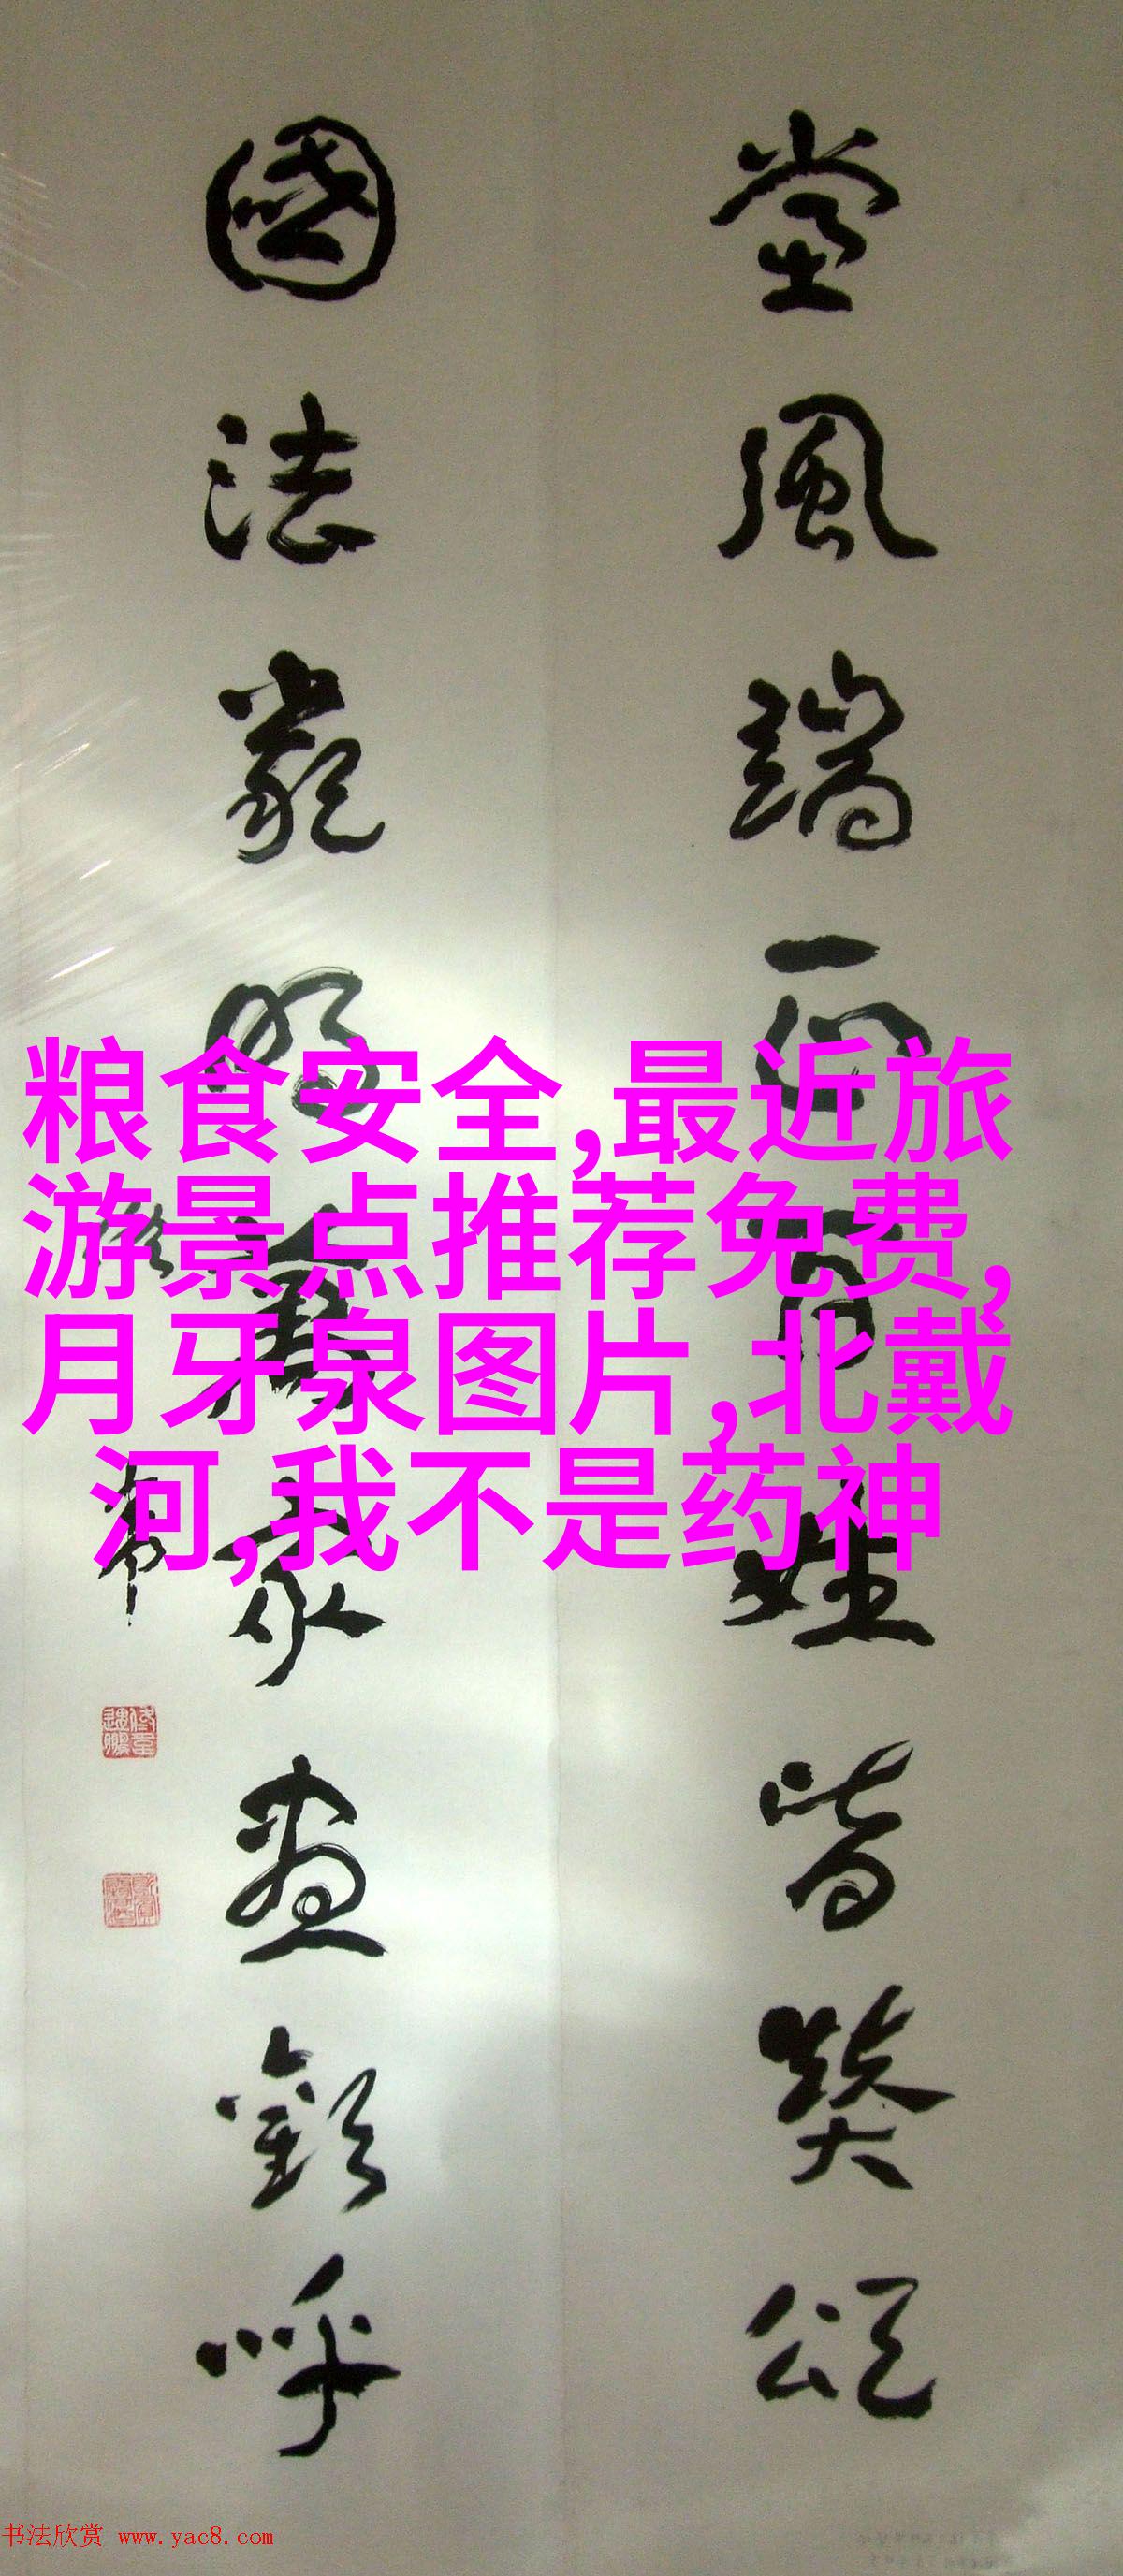 党风端正百姓皆赞颂
國法嚴明万家尽歡呼
粮食安全,最近旅
游景点推荐免费,
月牙泉图片,北戴
河,我不是药神
书法欣赏 www.yac8.com